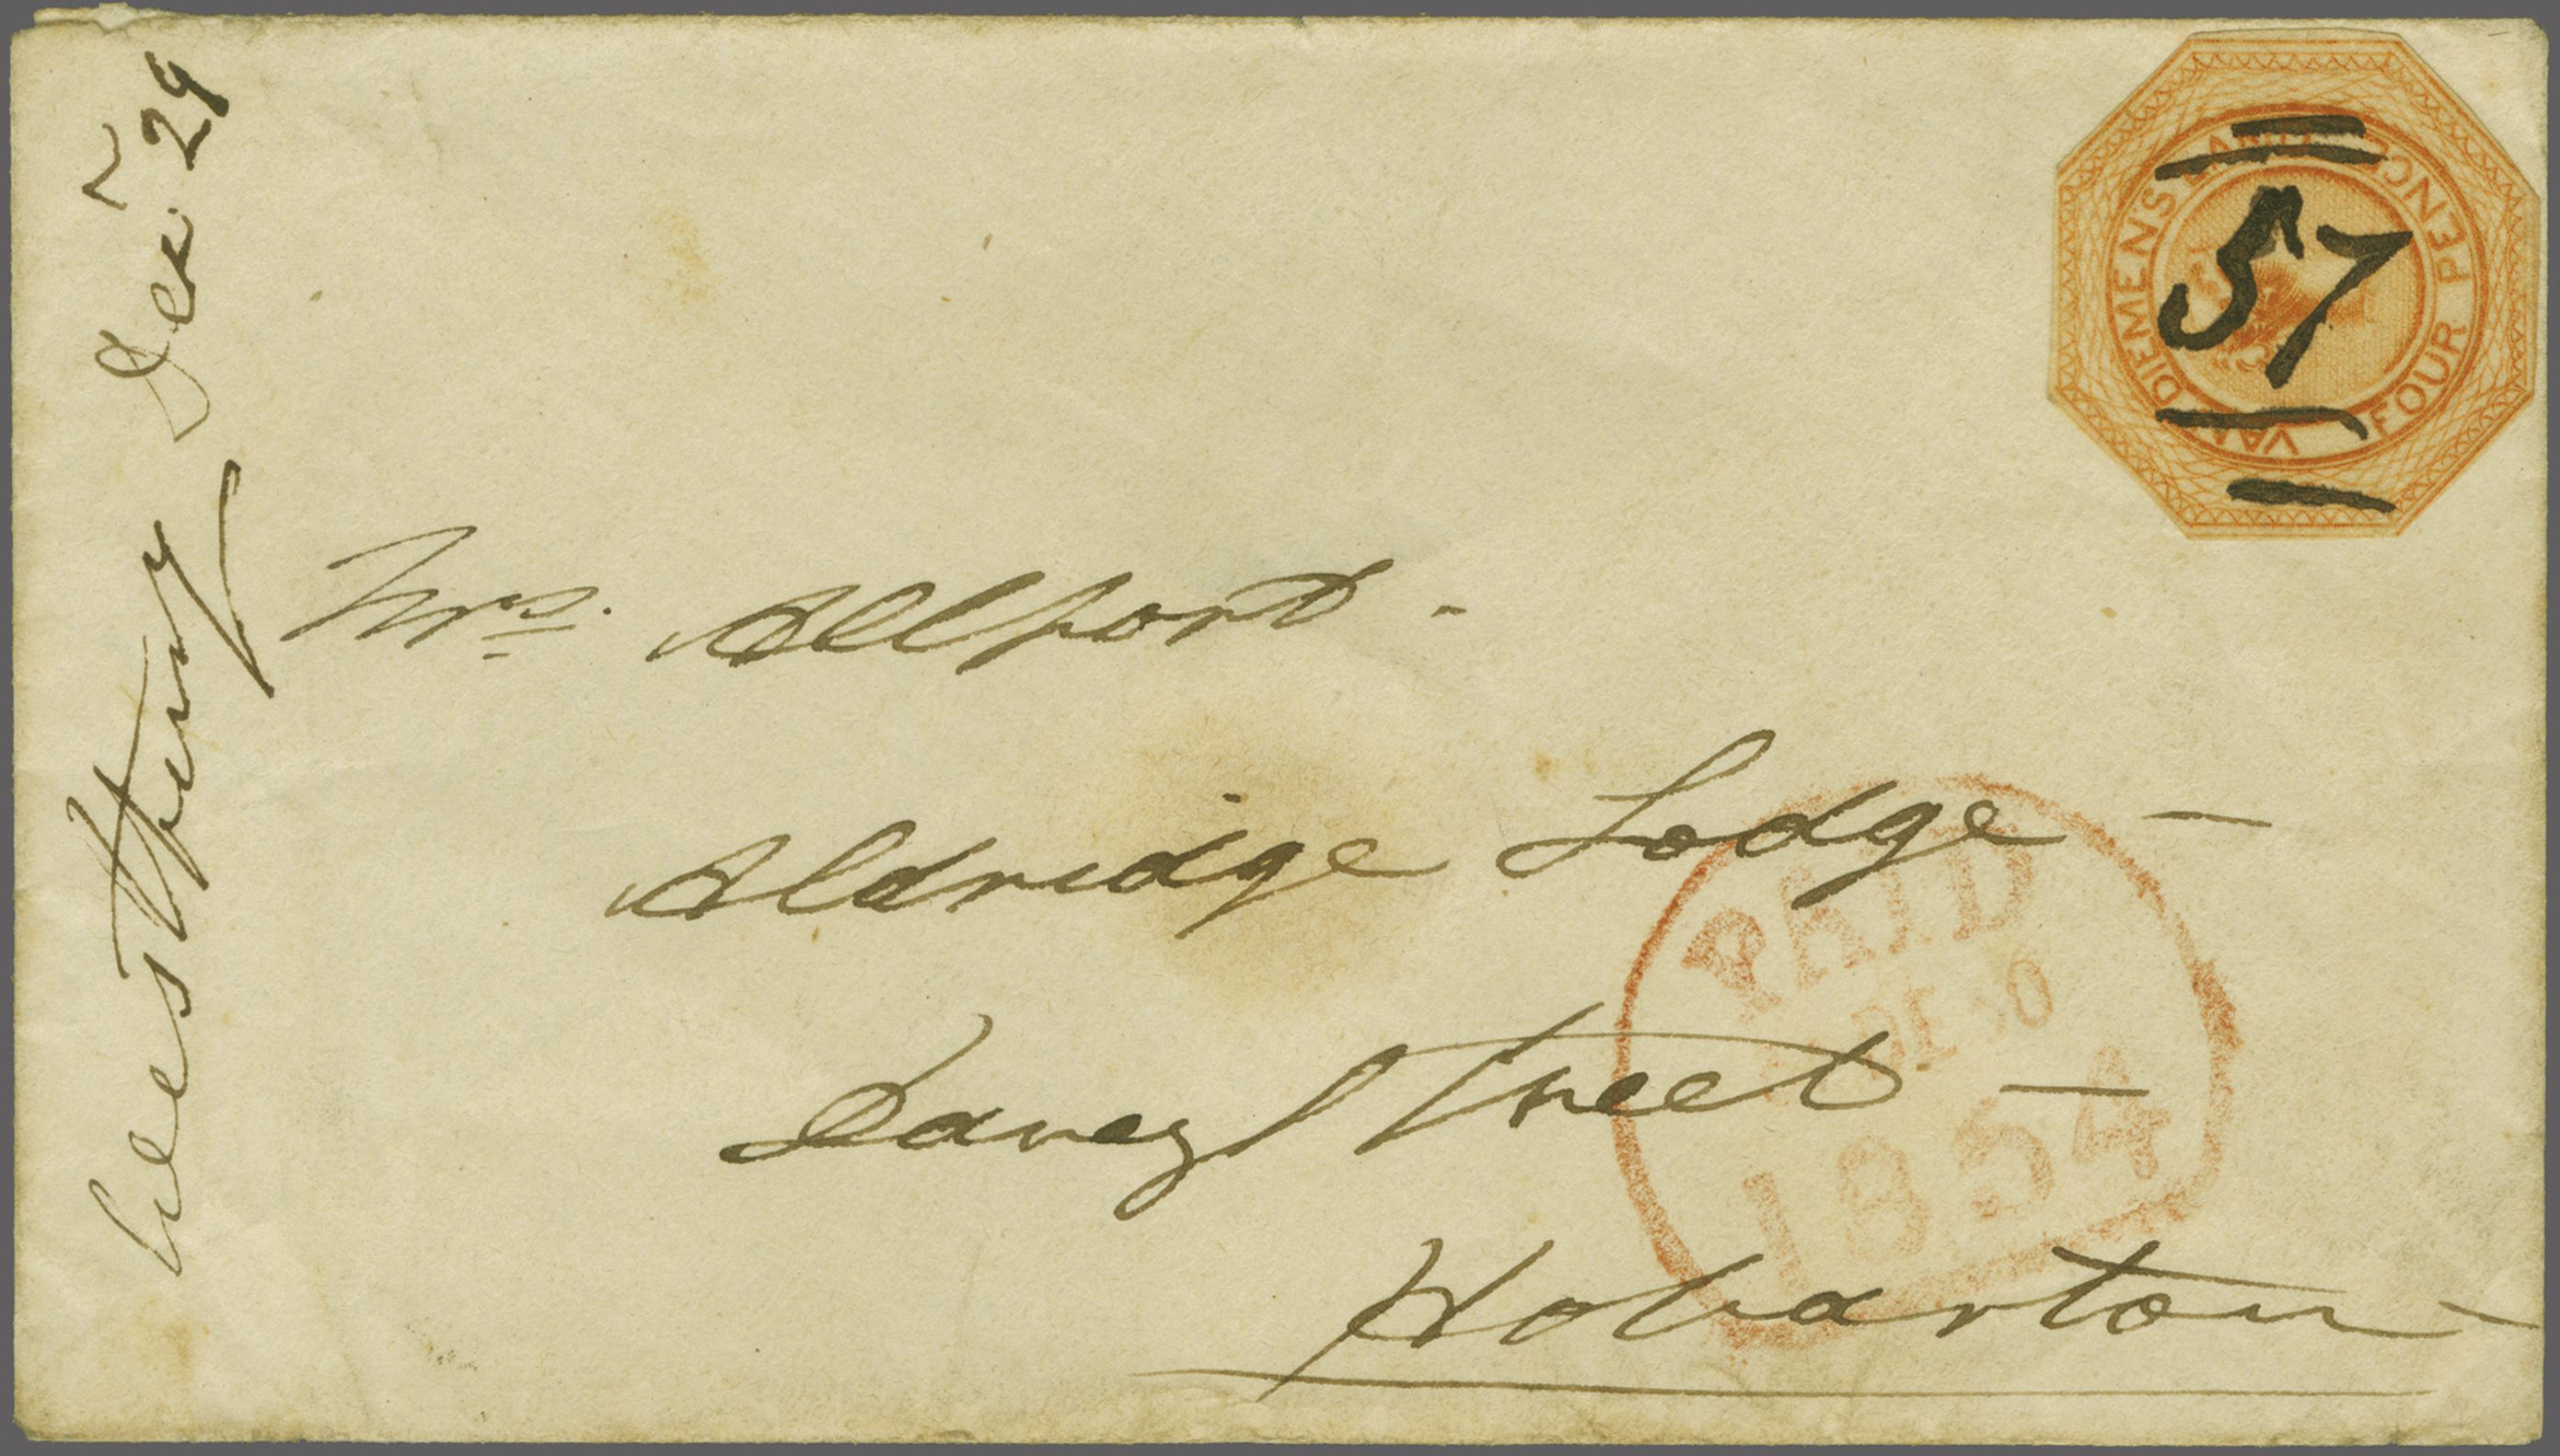 Dec 29
VAN DIEMENS LAND
FOUR PENCE
57
Mrs. Allport -
Aldridge Lodge -
Davey Street -
Hobarton -
PAID
DE 30
1854